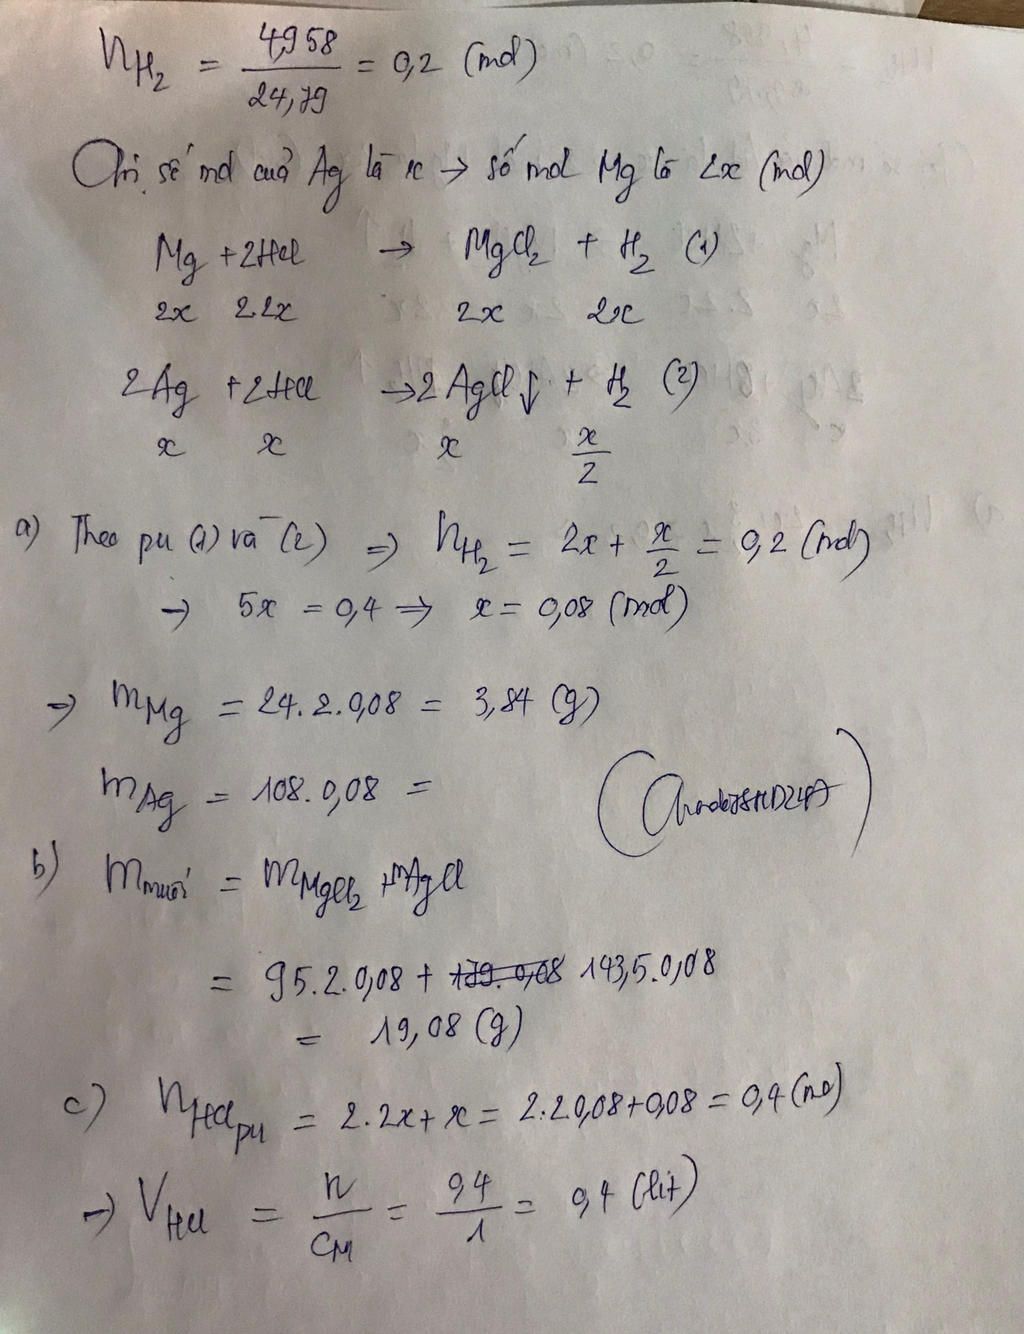 nH₂ = 4,958 / 24,79 = 0,2 (mol)
số mol của Ag là x → số mol Mg là 2x (mol)
Mg + 2HCl → MgCl₂ + H₂ (1)
2x 2.2x 2x 2x
2Ag + 2HCl → 2AgCl↓ + H₂ (2)
x x x x/2
a) Theo pu (1) và (2) => nH₂ = 2x + x/2 = 0,2 (mol)
→ 5x = 0,4 => x = 0,08 (mol)
=> mMg = 24.2.0,08 = 3,84 (g)
mAg = 108.0,08 =
b) mmuối = mMgCl₂ + mAgCl
= 95.2.0,08 + 143,5.0,08
= 19,08 (g)
c) nHCl pu = 2.2x + x = 2.2.0,08 + 0,08 = 0,4 (mol)
→ VHCl = n / CM = 0,4 / 1 = 0,4 (lit)